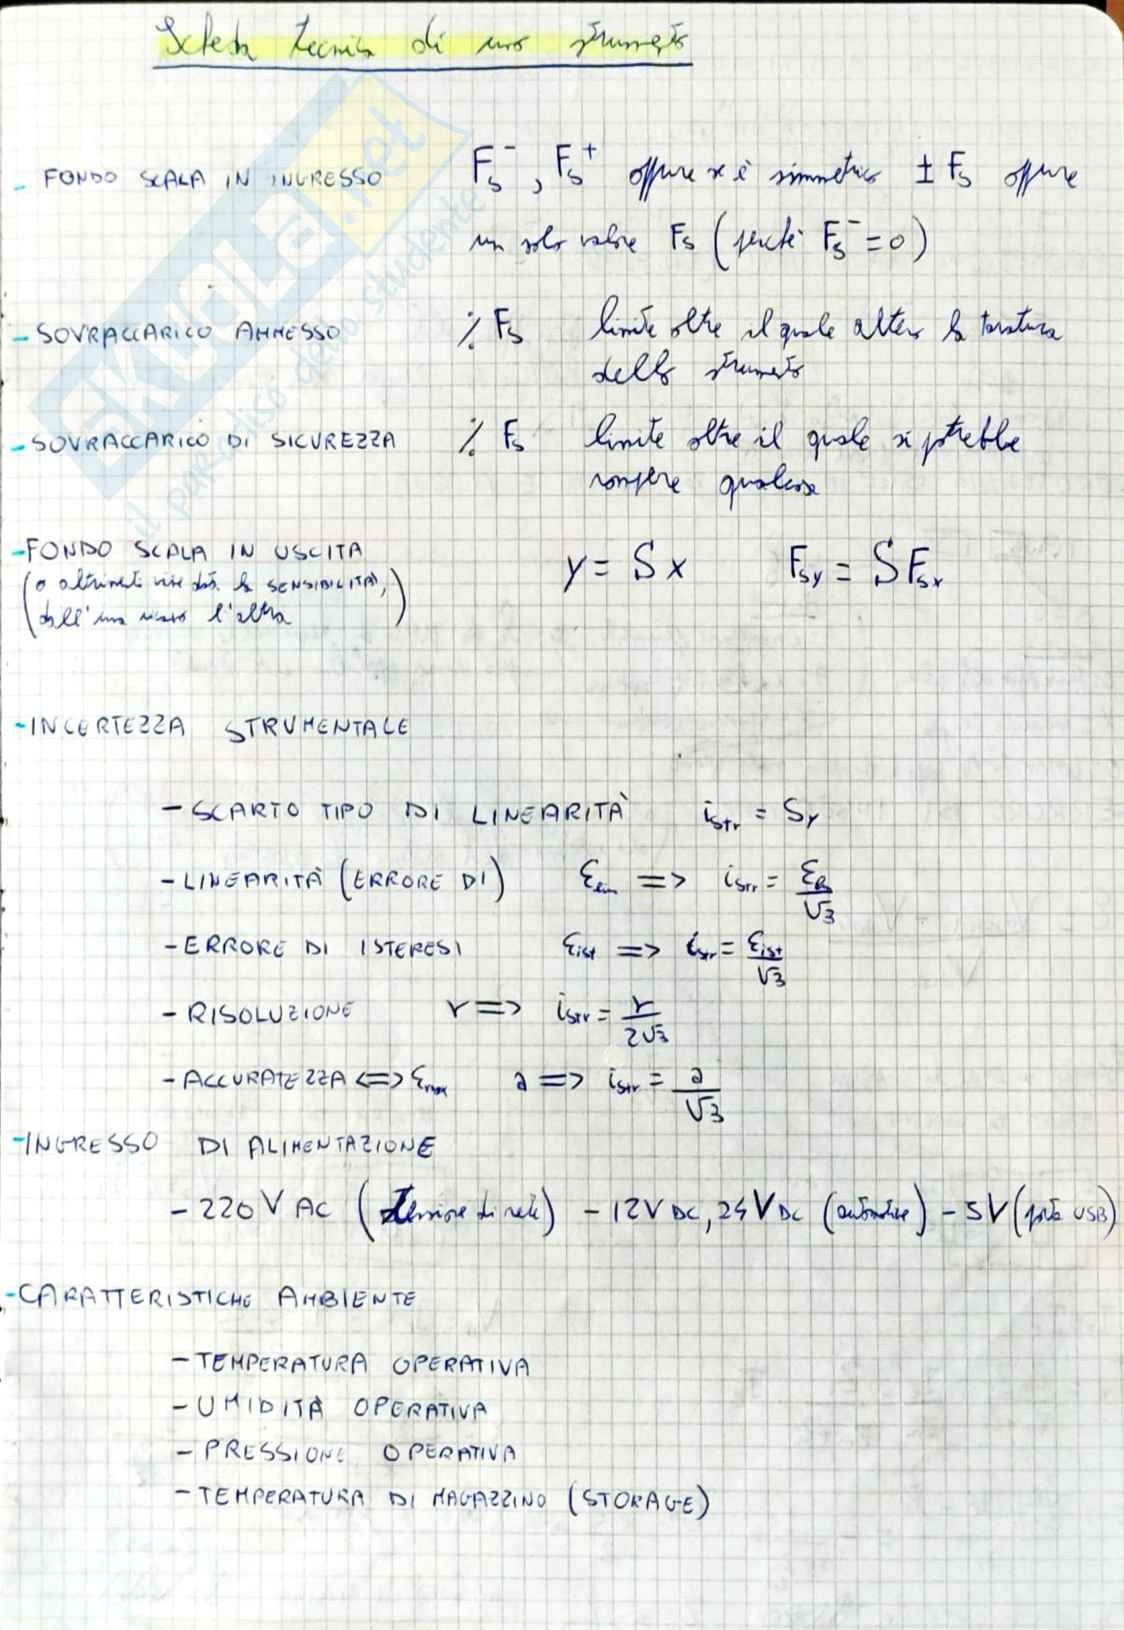 Scheda tecnica di uno strumento
- FONDO SCALA IN INGRESSO Fs⁻, Fs⁺ oppure se è simmetrico ± Fs oppure
un solo valore Fs (perché Fs⁻ = 0)
- SOVRACCARICO AMMESSO % Fs limite oltre il quale altero la taratura
dello strumento
- SOVRACCARICO DI SICUREZZA % Fs limite oltre il quale si potrebbe
rompere qualcosa
- FONDO SCALA IN USCITA y = S x Fsy = S Fsx
(o altrimenti viene data la SENSIBILITÀ,
dall'una ricavo l'altra)
- INCERTEZZA STRUMENTALE
- SCARTO TIPO DI LINEARITÀ istr = Sy
- LINEARITÀ (ERRORE DI) εlin => istr = εlin/√3
- ERRORE DI ISTERESI εist => istr = εist/√3
- RISOLUZIONE r => istr = r/2√3
- ACCURATEZZA <=> εmax a => istr = a/√3
- INGRESSO DI ALIMENTAZIONE
- 220 V AC (tensione di rete) - 12V DC, 24V DC (automotive) - 5V (porta USB)
- CARATTERISTICHE AMBIENTE
- TEMPERATURA OPERATIVA
- UMIDITÀ OPERATIVA
- PRESSIONE OPERATIVA
- TEMPERATURA DI MAGAZZINO (STORAGE)
SKUOLA.net
il paradiso dello studente